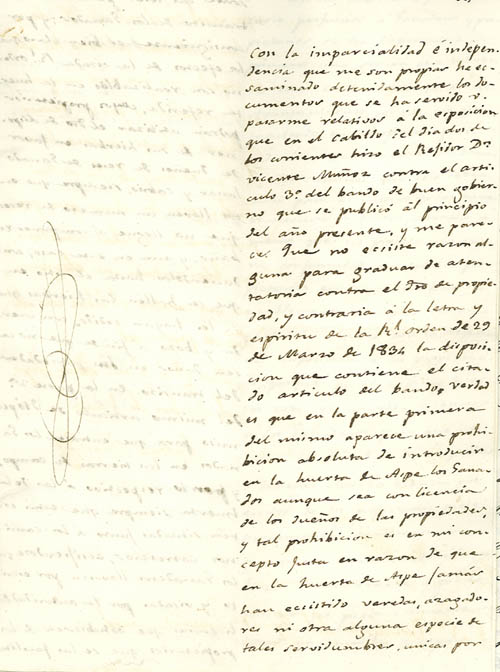 Con la imparcialidad é indepen-
dencia que me son propias he ec-
saminado detenidamente los do-
cumentos que se ha servido V.
pasarme relativos á la esposicion
que en el Cabildo del dia dos de
los corrientes hizo el Rejidor Dn.
Vicente Muñoz contra el arti-
culo 3º. del bando de buen gobier-
no que se publicó al principio
del año presente, y me pare-
ce: Que no ecsiste razon al-
guna para graduar de aten-
tatoria contra el dro de propie-
dad, y contraria á la letra y
espiritu de la Rl. orden de 29
de Marzo de 1834 la disposi-
cion que contiene el cita-
do articulo del bando, verdad
es que en la parte primera
del mismo aparece una prohi-
bicion absoluta de introducir
en la huerta de Aspe los Gana-
dos aunque sea con licencia
de los dueños de las propiedades,
y tal prohibicion es en mi con-
cepto justa en razon de que
en la huerta de Aspe jamás
han ecsistido veredas, azagado-
res ni otra alguna especie de
tales servidumbres, unicas por